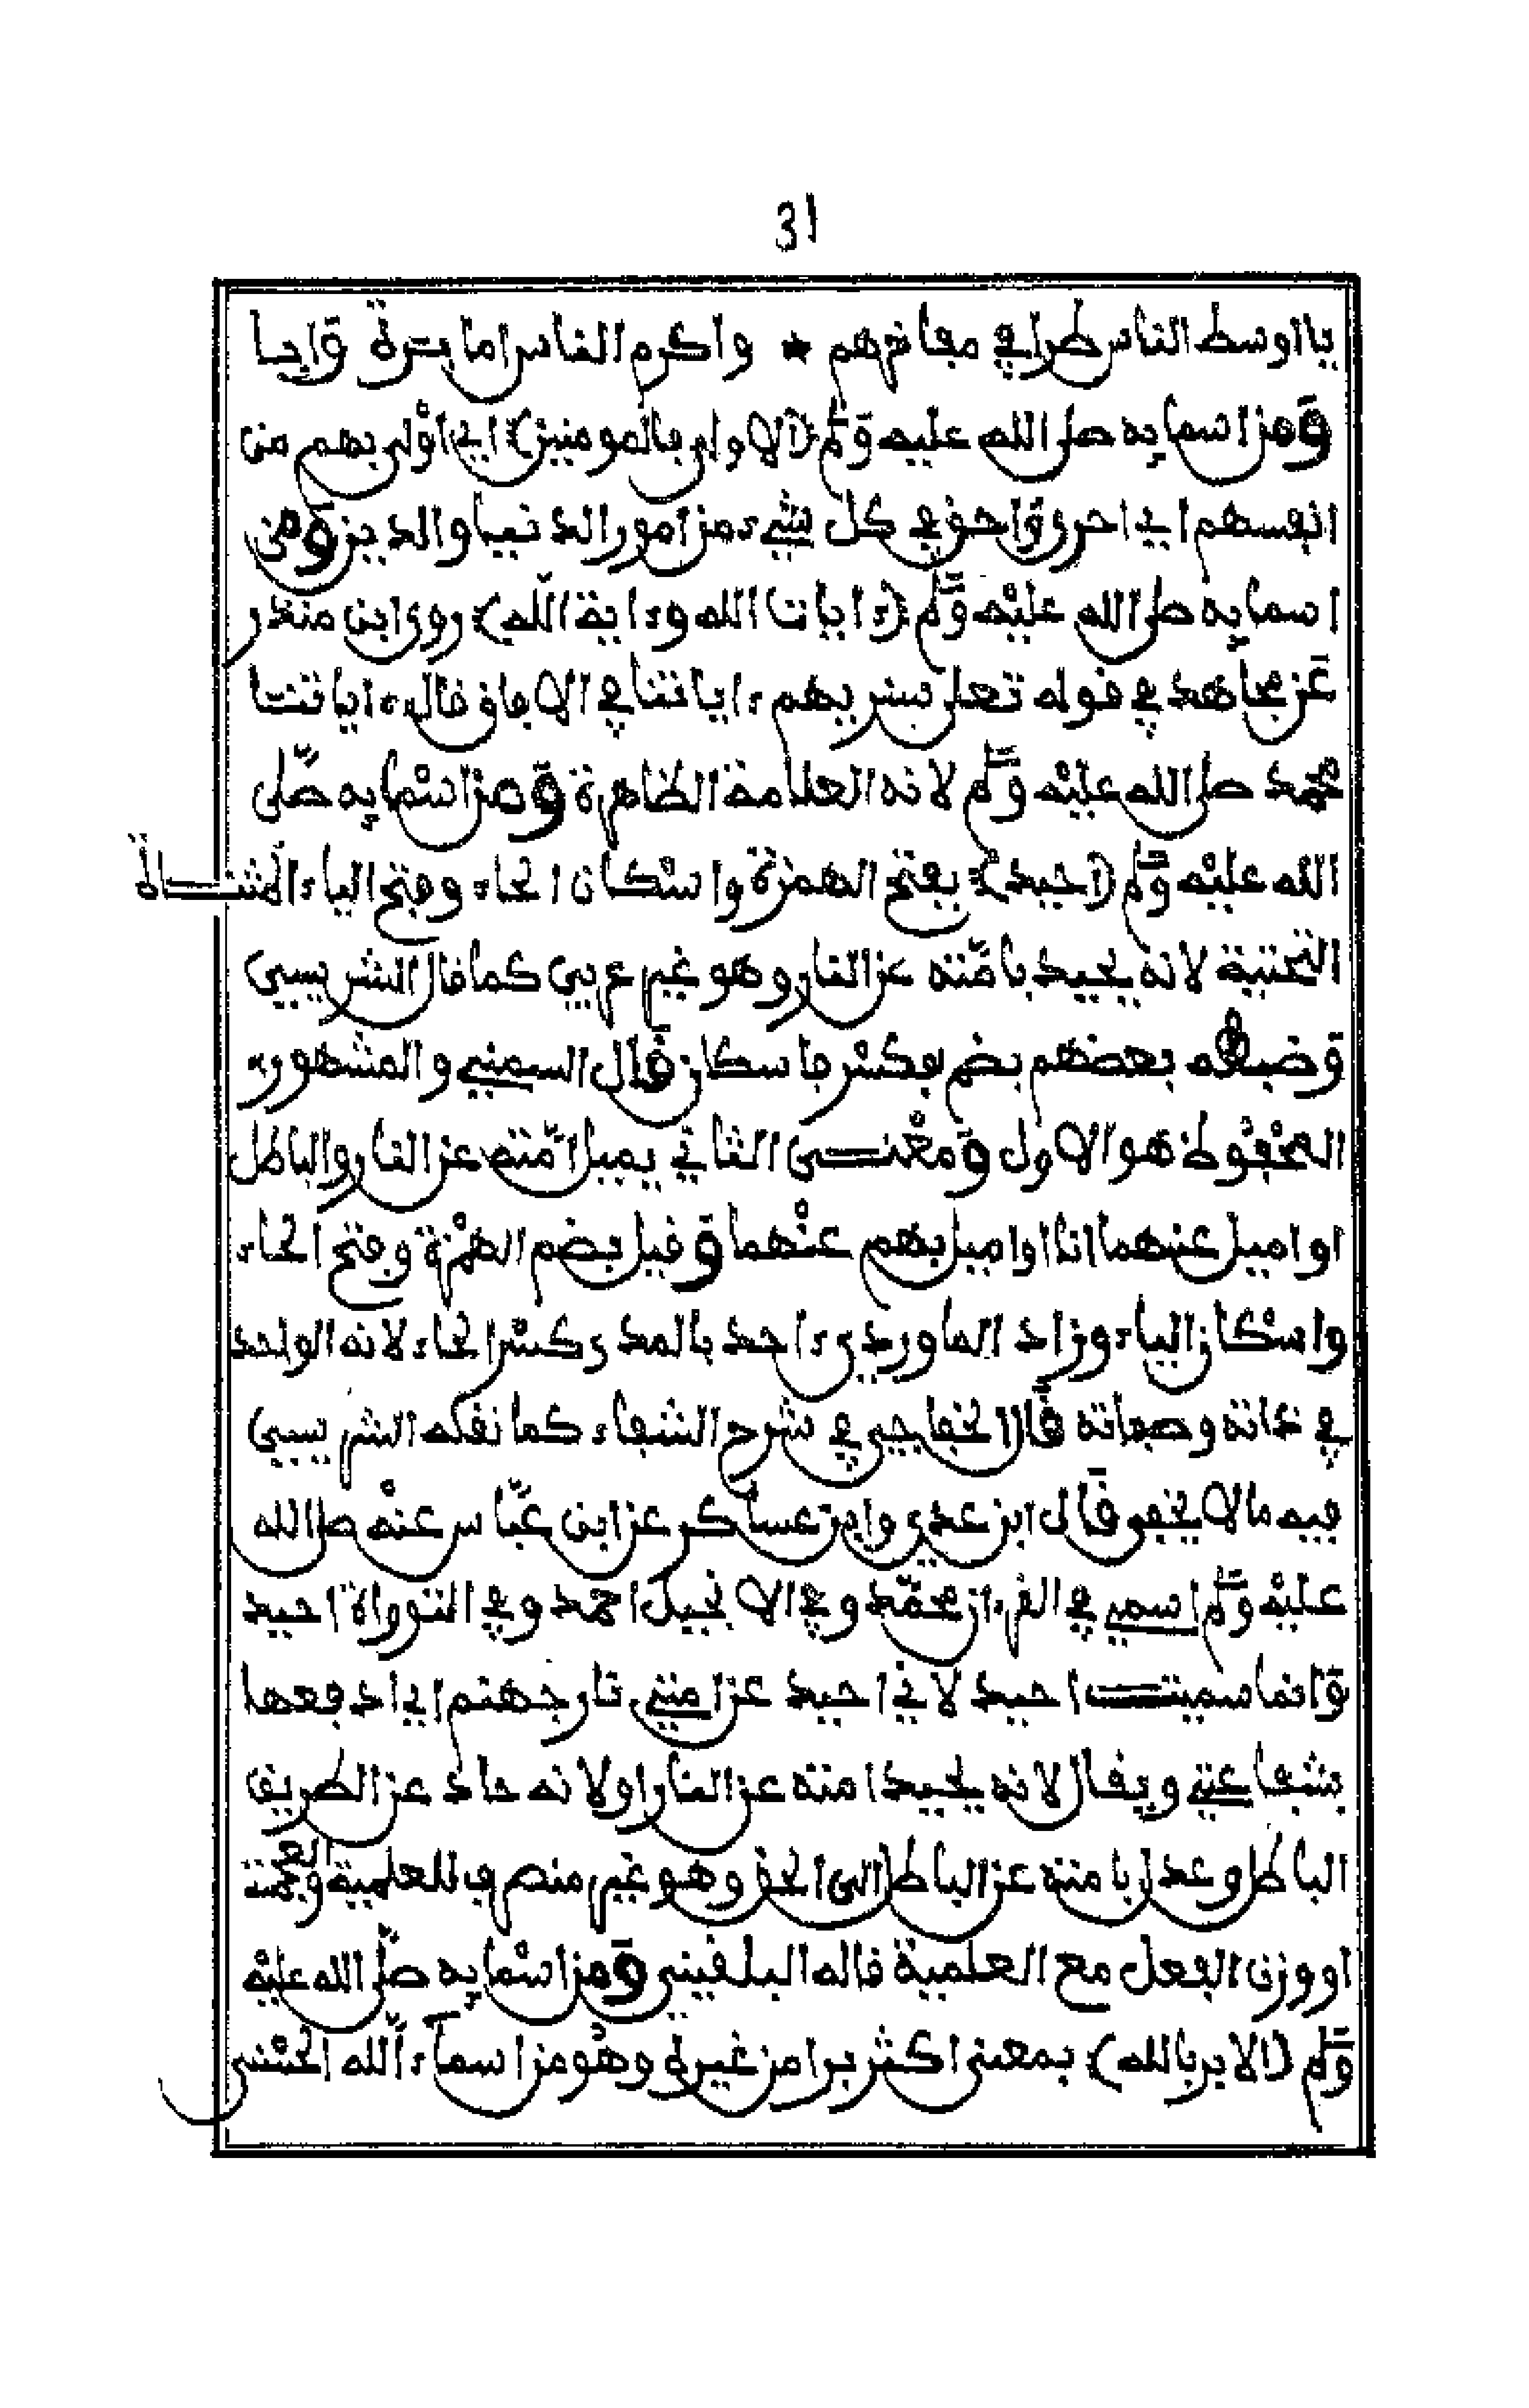 31
يا اوسط الناس طرا في مفاخرهم * واكرم الناس اما برة وابا
ومن اسمايه صلى الله عليه وسلم (الاولى بالمومنين) اي اولى بهم من
انفسهم اي احرى واحق في كل شيء من امور الدنيا والدين ومن
اسمايه صلى الله عليه وسلم (ءايات الله وءاية الله) روى ابن منذر
عن مجاهد في قوله تعلى سنريهم ءاياتنا في الافاق قال ءاياتنا
محمد صلى الله عليه وسلم لانه العلامة الظاهرة ومن اسمايه صلى
الله عليه وسلم (احيد) بفتح الهمزة واسكان الحاء وفتح الياء المثناة
التحتية لانه يحيد بامته عن النار وهو غير عربي كما قال الشريسي
وضبطه بعضهم بضم فكسر فاسكان قال السمني والمشهور
المحفوظ هو الاول ومعنى الثاني يميل امته عن النار والباطل
او اميل عنهما انا او اميل بهم عنهما وقيل بضم الهمزة وفتح الحاء
واسكان الياء وزاد الماوردي ءاحد بالمد وكسر الحاء لانه الواحد
في ذاته وصفاته قال الخفاجي في شرح الشفاء كما نقله الشريسي
فيه ما لا يخفى قال ابن عدي وابن عساكر عن ابن عباس عنه صلى الله
عليه وسلم اسمي في القرءان محمد وفي الانجيل احمد وفي التوراة احيد
وانما سميت احيد لاني احيد عن امتي نار جهنم اي ادفعها
بشفاعتي ويقال لانه يحيد امته عن النار او لانه حاد عن الطريق
الباطل وعدل بامته عن الباطل الى الحق وهو غير منصرف للعلمية والعجمة
او وزن الفعل مع العلمية قاله البلقيني ومن اسمايه صلى الله عليه
وسلم (الابر بالله) بمعنى اكثر برا من غيره وهو من اسماء الله الحسنى